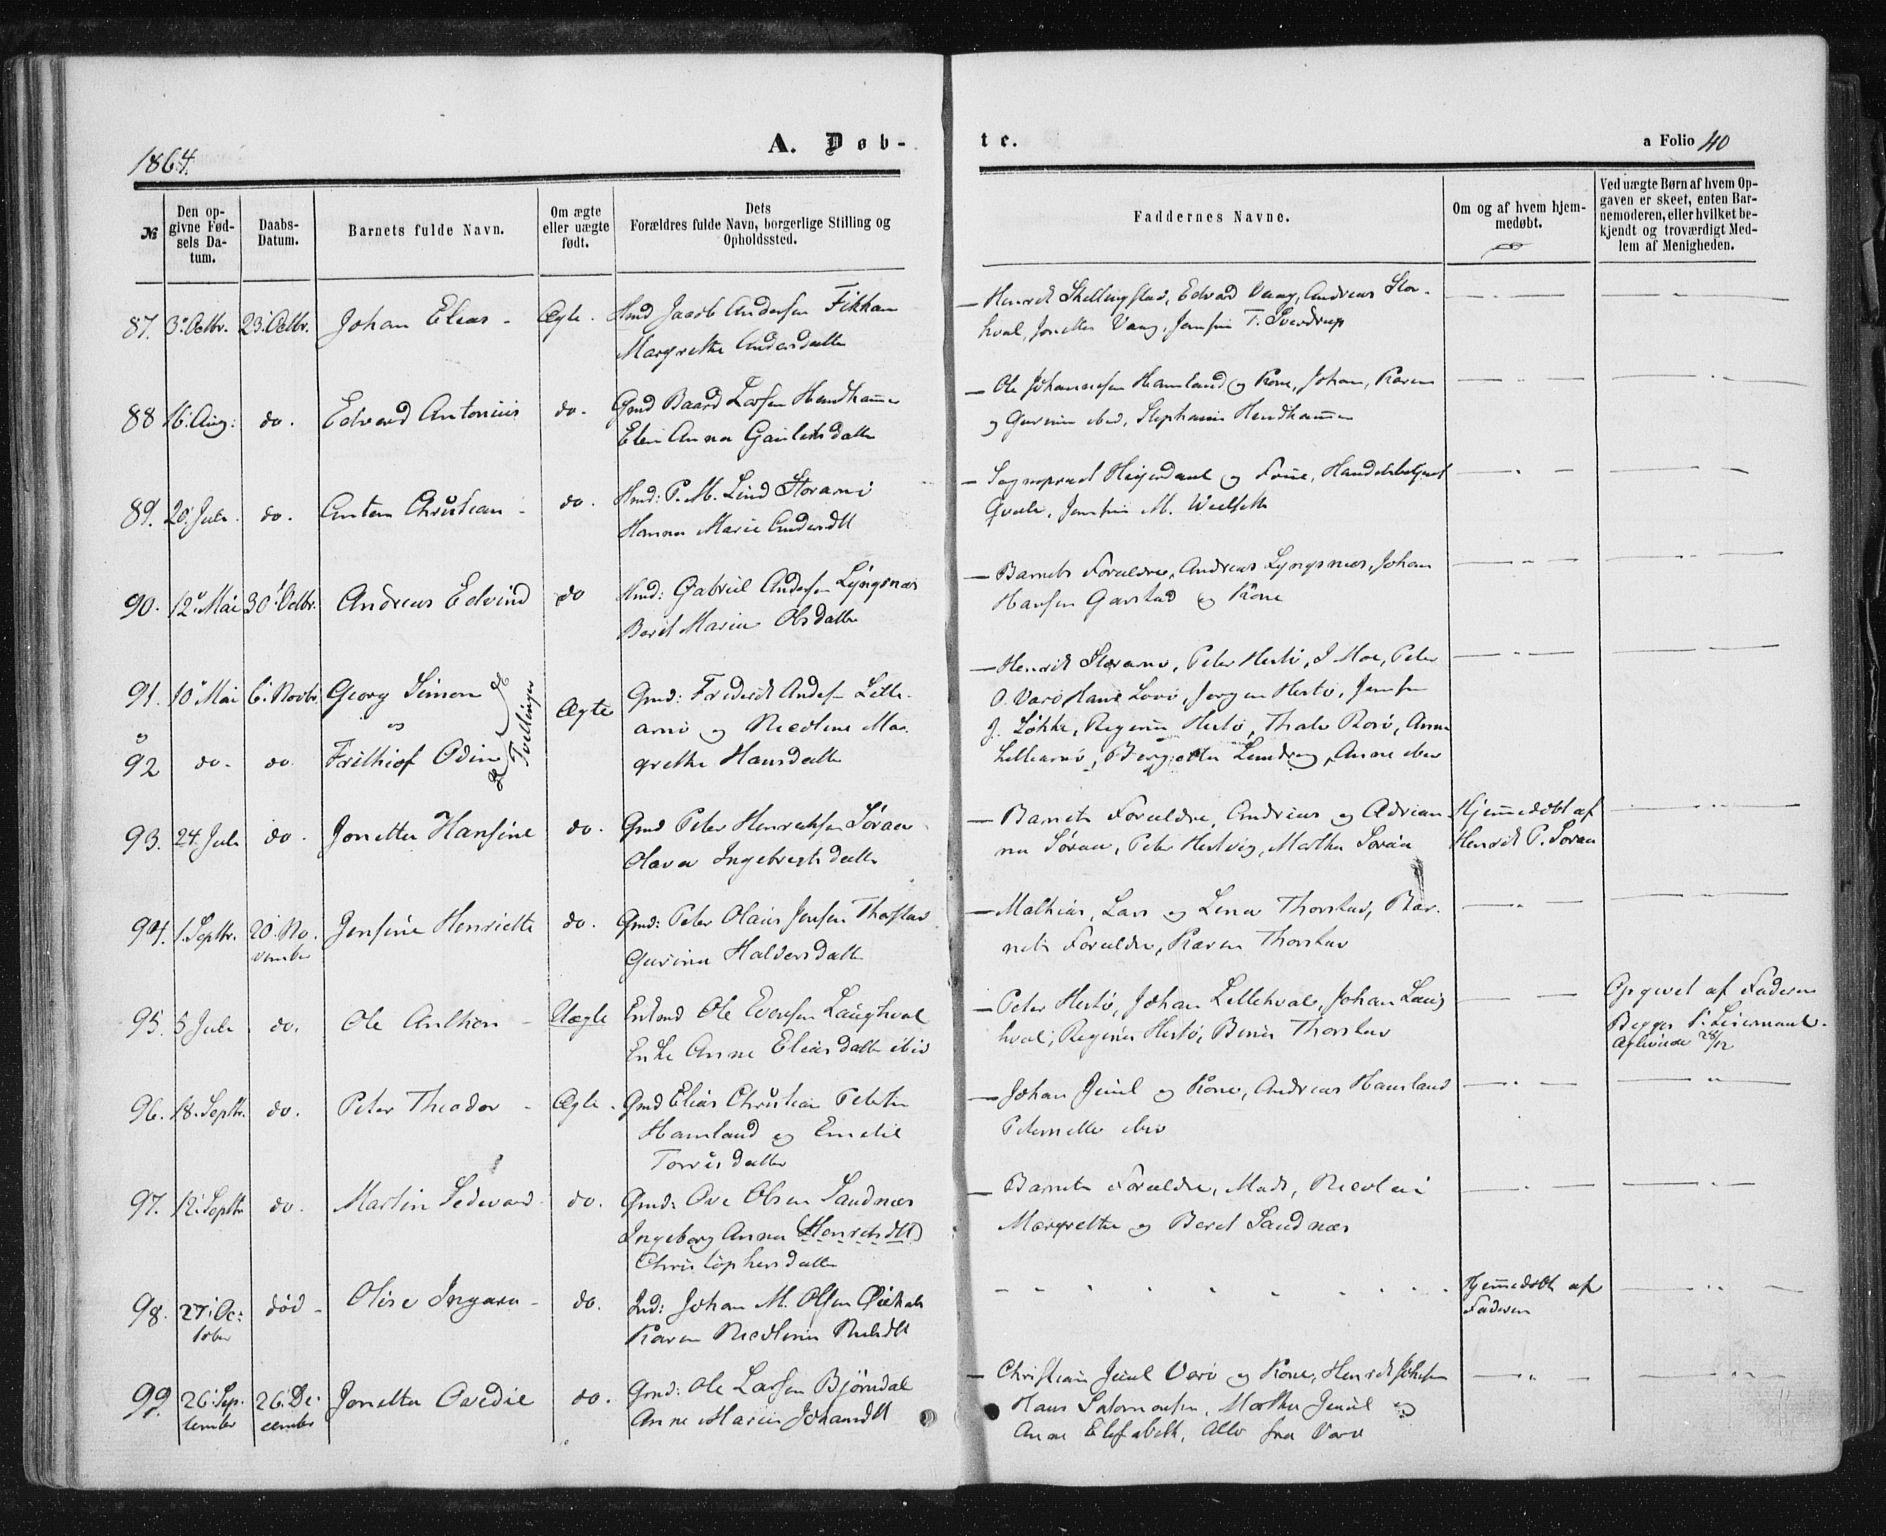 1864.
A. Døb-
te.
a Folio 40
№
Den op-
givne Fød-
sels Da-
tum.
Daabs-
Datum.
Barnets fulde Navn.
Om ægte
eller uægte
født.
Dets
Forældres fulde Navn, borgerlige Stilling og
Opholdssted.
Faddernes Navne.
Om og af hvem hjem-
medøbt.
Ved uægte Børn af hvem Op-
gaven er skeet, enten Bar-
nemoderen, eller hvilket be-
kjendt og troværdigt Med-
lem af Menigheden.
87. 3. Octbr. 23. Octbr. Johan Elias - Ægte. Hmd Jacob Andersen Fikkan
Margrethe Andersdatter
Henrik Skillingstad, Edvard Vaag, Andreas Stor-
hval, Jonetta Vaag, Jensine T. Sverdrup
88 16. Aug: do. Edvard Antonius do. Gmd Baard Larsen Hendhammer
Elen Anna datter
Ole Johannesen Hamland og Kone, Johan, Karen
og Gurine ibid, Stephanus Hendhammer
89. 20. Juli do. Anton Christian - do. Hmd: P. M. Lind Storarnø
Hanna Marie Andersdtt
og Frue, Handelsbetjent
Qvale, Jensine M. Widseth
90. 12. Mai 30. Octbr. Andreas Edvind do Hmd: Gabriel Andersen Lyngsnæs
Berit Marie Olsdatter
Barnets Forældre, Andreas Lyngsnæs, Johan
Hansen Gavstad og Kone
91. 10. Mai 6. Novbr. Georg Simon
og
92 do. do. Frithiof Odin
Tvillinger
Ægte
Gmd: Frederik Andersen Lille-
arnø og Nicoline Mar-
grethe Hansdatter
Henrik Storarnø, Peter Hestø, J Moe, Peter
O. Varø Hans Lovø, Jørgen Hestø, Jensen
J. Løkke, Regine Hestø, Thale Rosø, Anne
Lillearnø, Lundring, Anne ibid
93. 24. Juli do. Jonetta Hansine do. Gmd Peter Henriksen Søraa
Olava Ingebrigtsdatter
Barnets Forældre, Andreas og Adrian-
na Søraa, Peter Hestvig, Martha Søraa
Hjemmedøbt af
Henrik P. Søraa
94. 1. Septbr. 20. No-
vember
Jensine Henriette do. Gmd: Peter Olaus Jensen Thorstad
Gurina Halversdatter
Mathias, Lars og Lina Thorstad, Bar-
nets Forældre, Karen Thorstad
95. 5 Juli do. Ole Anthon - Uægte Enkmd Ole Evensen Langhval
Enke Anne Eliasdatter ibid
Peter Hestø, Johan Lillehval, Johan Lang-
hval, Regine Hestø, Thorstad
Opgivet af Faderen
Begges Leiermaal.
96. 18. Septbr. do. Peter Theodor - Ægte. Gmd Elias Christian Petersen
Hamland og Emelie
Torrisdatter
Johan Juul og Kone, Andreas Hamland
Peternelle ibid
97. 12. Septbr do. Martin Sedevard do. Gmd: Ove Olsen Sandnæs
Ingeborg Anna (Henriksdtt)
Christophersdatter
Barnets Forældre, Mads, Nicolai
Margrethe og Beret Sandnæs
98. 27. Oc-
tober
død - Olise Ingara - do. Ind: Johan M. Olsen
Karen Nicoline
Hjemmedøbt af
Faderen
99. 26. Sep-
tember
26. De-
cember
Jonetta Ovedie do. Gmd: Ole Larsen Bjørndal
Anne Marie Johansdtt
Christian Juul Varø og Kone, Henrik Johnsen
Hans Salomonsen, Martha Juul og
Anne Elisabeth, Alle fra Varø